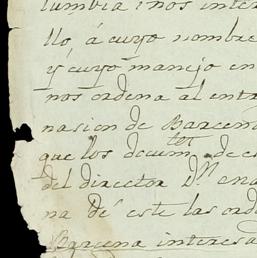 lumbia i nos inter
llo, á cuyo nombre
y cuyo manejo en
nos ordena al entr
nasion de Barcen
que los docum.tos de e
del director D.n ena
na de este las ord
Barcena interesa